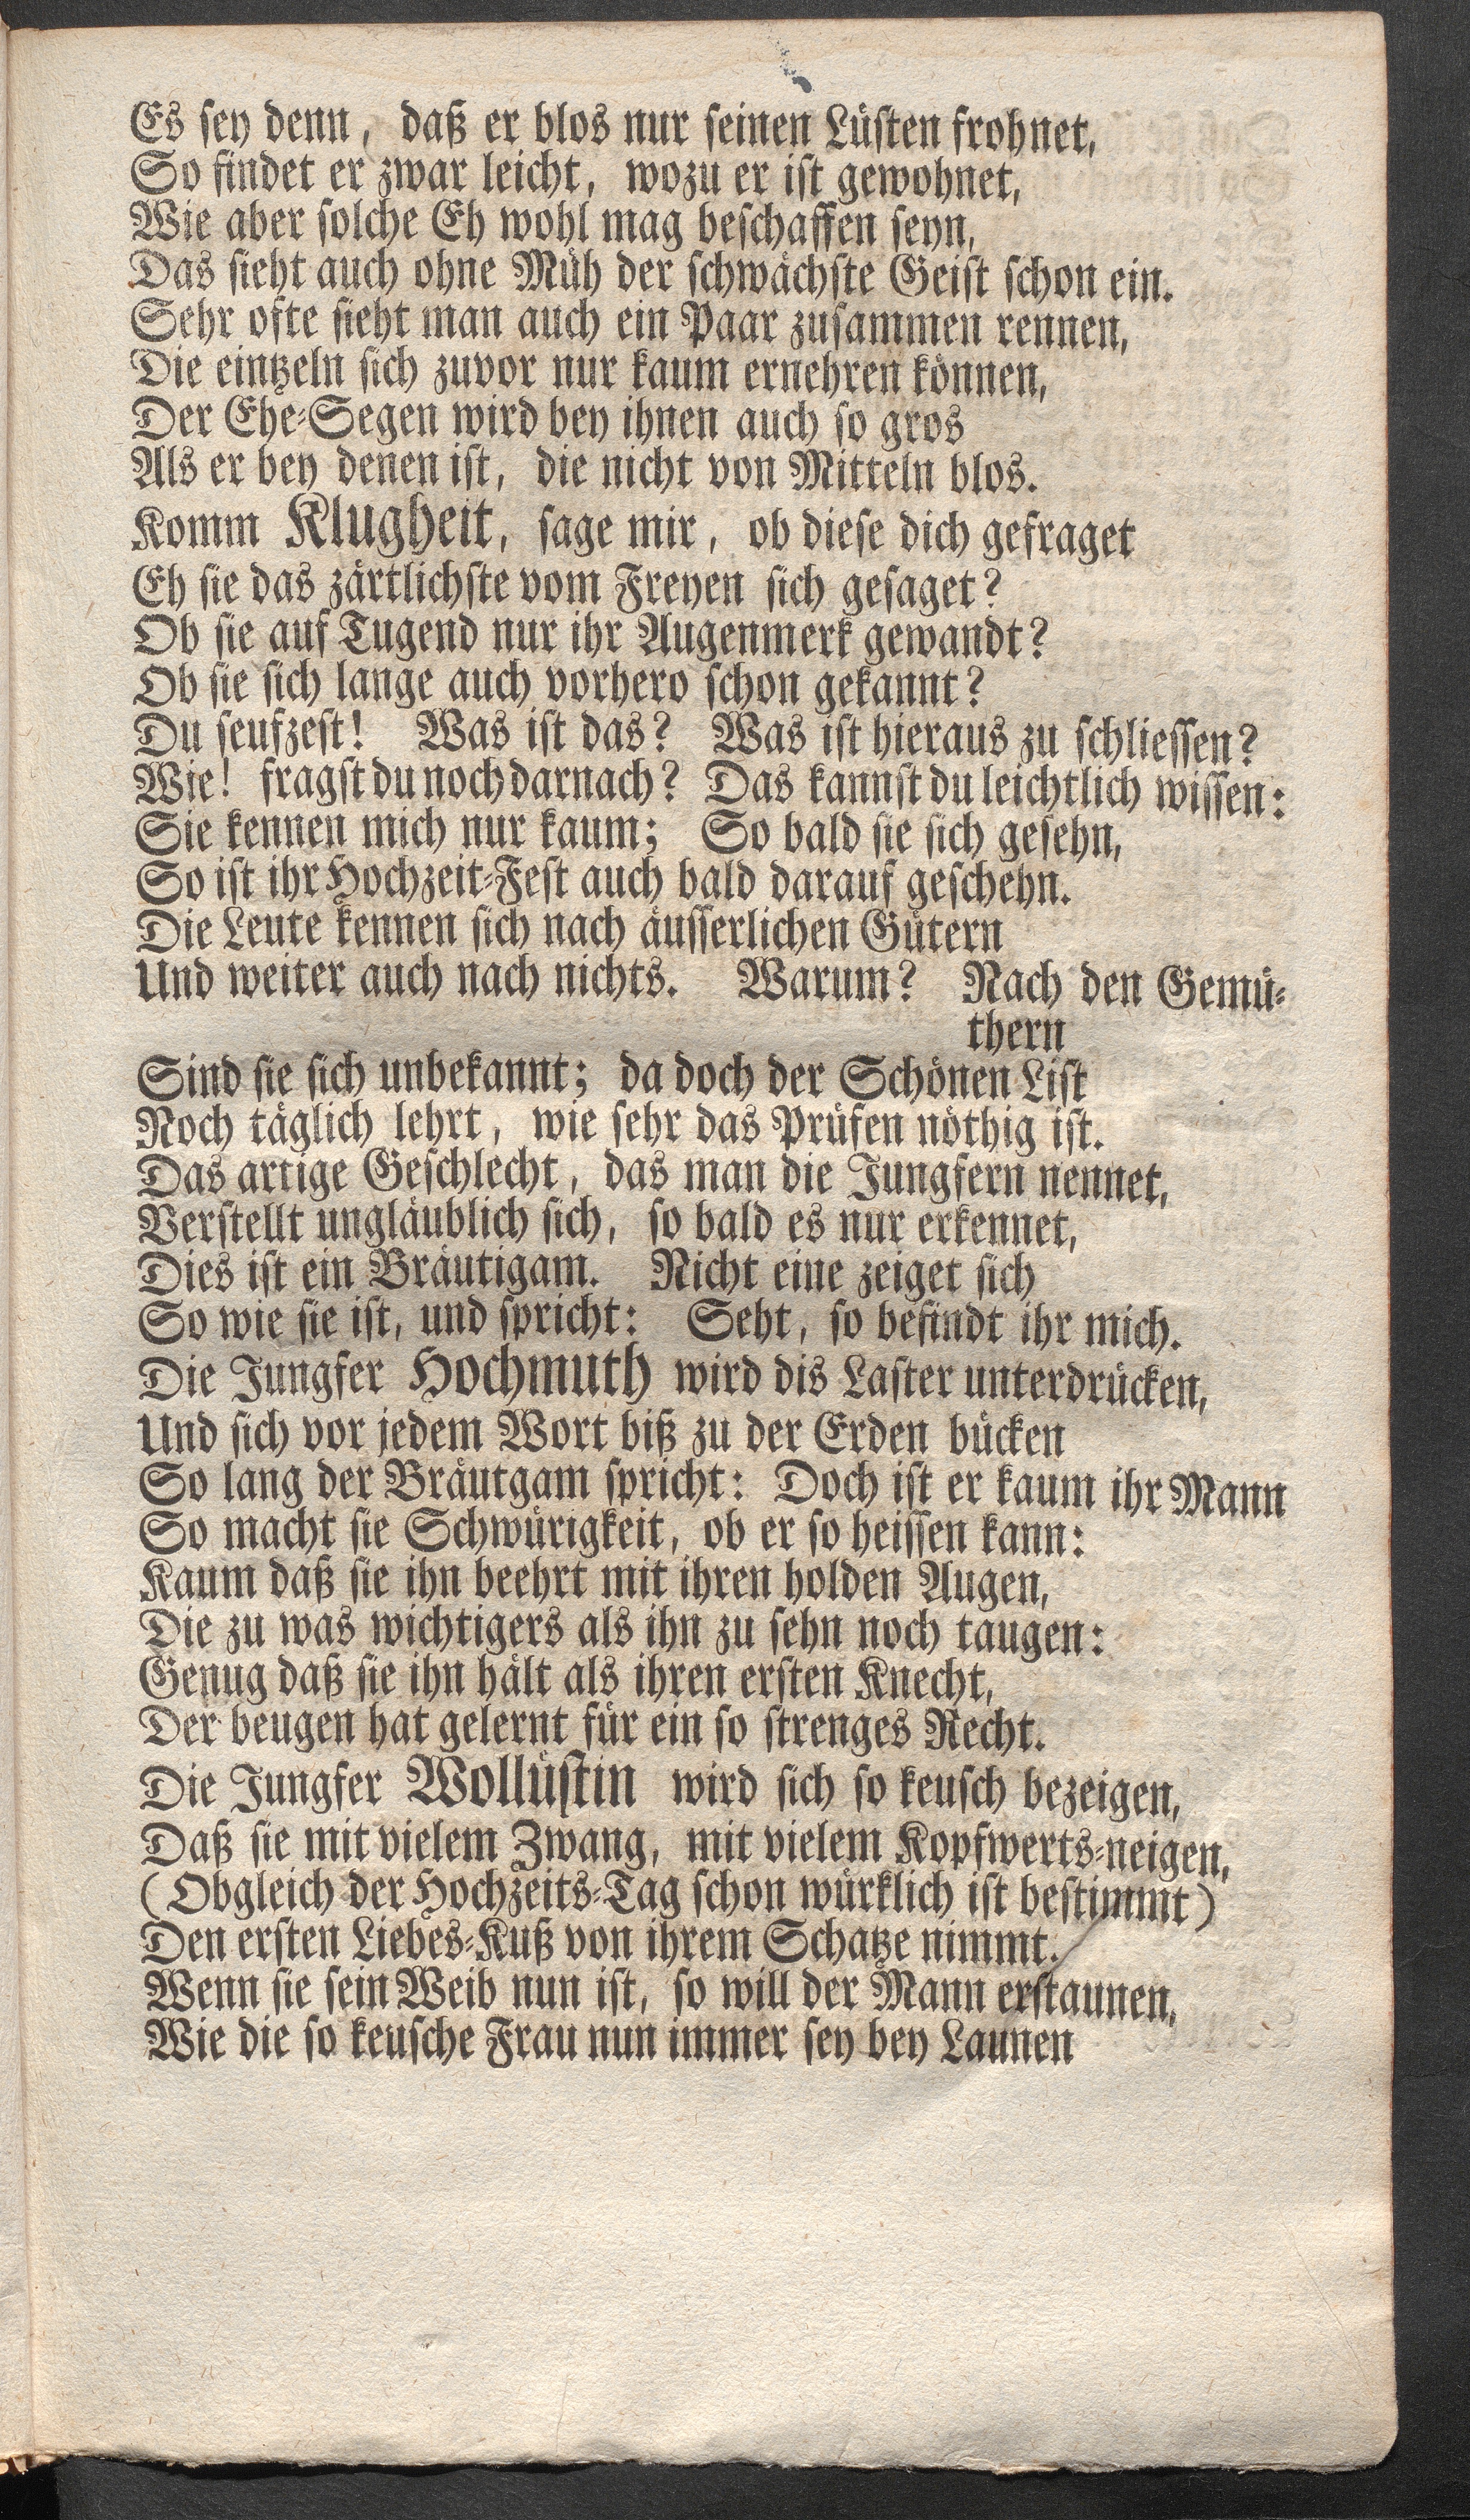 Es sey denn, daß er blos nur seinen Lüsten frohnet,
So findet er zwar leicht, wozu er ist gewohnet,
Wie aber solche Eh wohl mag beschaffen seyn,
Das sieht auch ohne Müh der schwächste Geist schon ein.
Sehr ofte sieht man auch ein Paar zusammen rennen,
Die eintzeln sich zuvor nur kaum ernehren können,
Der Ehe-Segen wird bey ihnen auch so gros
Als er bey denen ist, die nicht von Mitteln blos.
Komm Klugheit, sage mir, ob diese dich gefraget
Eh sie das zärtlichste vom Freyen sich gesaget?
Ob sie auf Tugend nur ihr Augenmerk gewandt?
Ob sie sich lange auch vorhero schon gekannt?
Du seufzest! Was ist das? Was ist hieraus zu schliessen?
Wie! fragst du noch darnach? Das kannst du leichtlich wissen:
Sie kennen mich nur kaum; So bald sie sich gesehn,
So ist ihr Hochzeit-Fest auch bald darauf geschehn.
Die Leute kennen sich nach äusserlichen Gütern
Und weiter auch nach nichts. Warum? Nach den Gemü-
thern
Sind sie sich unbekannt; da doch der Schönen List
Noch täglich lehrt, wie sehr das Prüfen nöthig ist.
Das artige Geschlecht, das man die Jungfern nennet,
Verstellt ungläublich sich, so bald es nur erkennet,
Dies ist ein Bräutigam. Nicht eine zeiget sich
So wie sie ist, und spricht: Seht, so befindt ihr mich.
Die Jungfer Hochmuth wird dis Laster unterdrücken,
Und sich vor jedem Wort biß zu der Erden bücken
So lang der Bräutgam spricht: Doch ist er kaum ihr Mann
So macht sie Schwürigkeit, ob er so heissen kann:
Kaum daß sie ihn beehrt mit ihren holden Augen,
Die zu was wichtigers als ihn zu sehn noch taugen:
Genug daß sie ihn hält als ihren ersten Knecht,
Der beugen hat gelernt für ein so strenges Recht.
Die Jungfer Wollüstin wird sich so keusch bezeigen,
Daß sie mit vielem Zwang, mit vielem Kopfwerts-neigen,
(Obgleich der Hochzeits-Tag schon würklich ist bestimmt)
Den ersten Liebes-Kuß von ihrem Schatze nimmt.
Wenn sie sein Weib nun ist, so will der Mann erstaunen,
Wie die so keusche Frau nun immer sey bey Launen